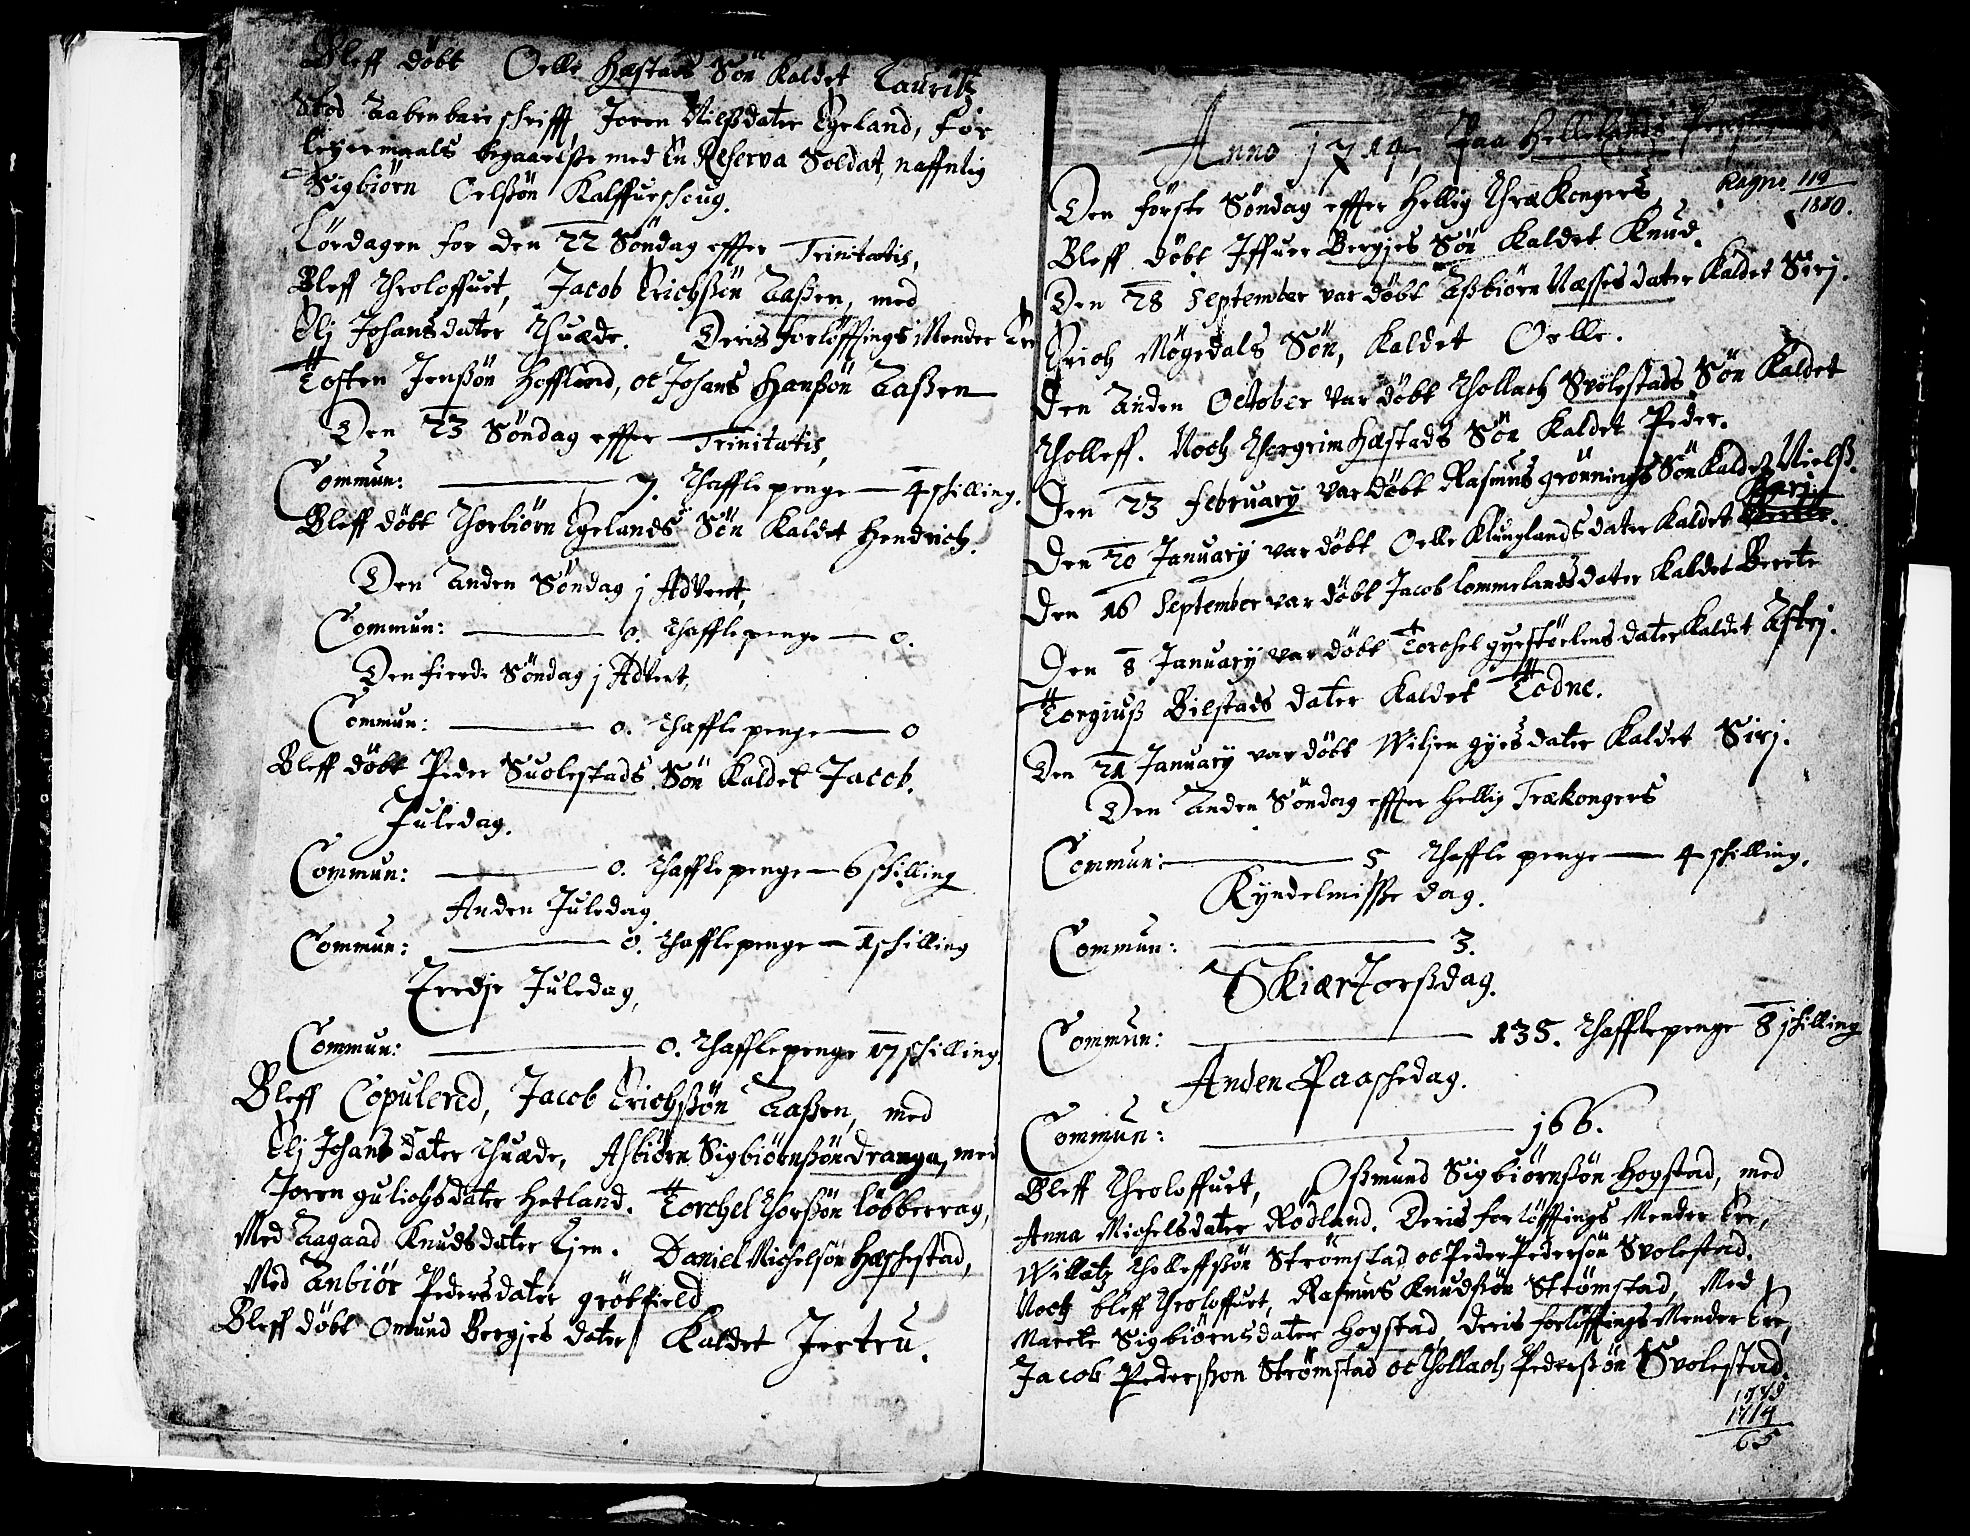 Bleff döbt Oelle Hæstads Sön Kaldet Lauritz
Stod Aabenbare schrifft, Joren Nielßdater Egeland, for
leyermaals begaaelße med En Reserva Soldat, naffnlig
Sigbiörn Oelßön Kalffueshoug.
Lördagen for den 22 Söndag effter Trinitatis,
Bleff Throloffuet, Jacob Erichßön Aaßen, med
Elj Johansdater Thuæde. Deris forlöfftings Mender Ere
Tosten Jenßön Hoffland, oc Johans Hanßön Aaßen
Den 23 Söndag effter Trinitatis,
Commun: 7. Thafflepenge 4 schilling.
Bleff döbt Thorbiörn Egelands Sön Kaldet Hendrich.
Den Anden Söndag j Advent,
Commun: 0. Thafflepenge 0.
Den fierde Söndag j Advent,
Commun: 0. Thafflepenge 0
Bleff döbt Peder Suolestads Sön Kaldet Jacob.
Juledag.
Commun: 0. Thafflepenge 6 schilling
Anden Juledag.
Commun: 0. Thafflepenge 1 schilling
Tredje Juledag,
Commun: 0. Thafflepenge 17 schilling.
Bleff Copulered, Jacob Erichßön Aaßen, med
Elj Johansdater Thuæde, Asbiörn Sigbiörnßön Dranga, med
Joren gulichsdater Hetland. Torchel Thorßön löbberrag,
Med Aagaad Knudsdater Ejen. Daniel Michelsön Hæschestad,
Med Anbiör Pedersdater grötfield
Bleff döbt Omund Bergjes dater Kaldet Jertru.
Anno 1714, Paa Hellelands
Ragne 119
1880.
Den förste Söndag effter Hellig Thræ Kongers
Bleff döbt Iffuer Bergjes Sön Kaldet Knud.
Den 28 September var döbt Aßbiörn Næsses dater Kaldet Sirj.
Erich Mögedals Sön, Kaldet Oelle.
Den Anden October var döbt Thollach Svolestads Sön Kaldet
Tholleff. Noch Thorgrim Hæstads Sön Kaldet Peder.
Den 23 February var döbt Rasmus grönnings Sön Kaldet Nielß.
Karj
Den 20 January var döbt Oelle Klunglands dater Kaldet
Den 16 September var döbt Jacob Lommelands dater Kaldet Berete
Den 8 January var döbt Torchel gyestöelens dater Kaldet Astrj.
Torgiuß Bilstads dater Kaldet Todne.
Den 21 January var döbt Wiljen gyesdater Kaldet Sirj.
Den Anden Söndag effter Hellig Trækongers
Commun: 5 Thafflepenge 4 schilling.
Kyndelmisße dag.
Commun: 3.
Skiærtorßdag.
Commun: 135. Thafflepenge 8 schilling
Anden Paaschedag.
Commun: 166.
Bleff Throloffuet, Oßmund Sigbiörnßön Hogstad, med
Anna Michelsdater Rodland. Deris forlöfftings Mender Ere,
Willatz Tholleffßön Strömstad oc Peder Pedersön Svolestad.
Noch bleff Throloffuet, Rasmus Knudßön Strömstad, Med
Marete Sigbiörnsdater Hogstad, deris forlöfftings Mender Ere,
Jacob Pederßon Strömstad oc Thollach Pederßön Svolestad.
1779
1714
65